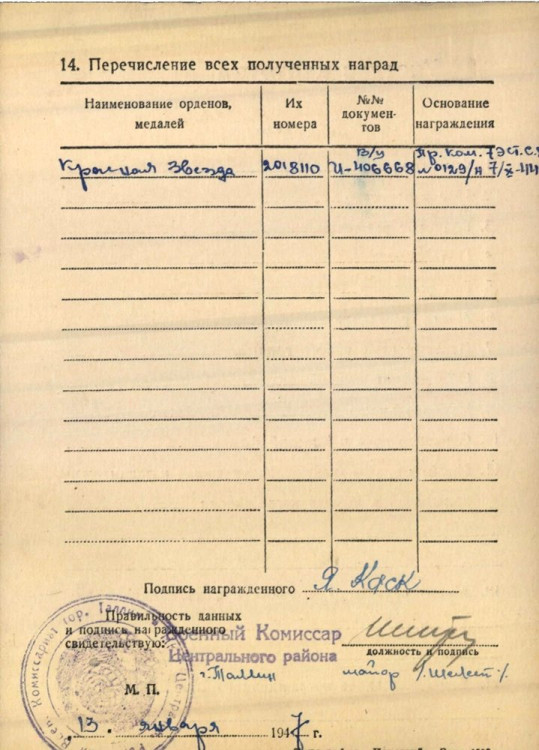 14. Перечисление всех полученных наград
Наименование орденов, медалей
Их номера
№№ документов
Основание награждения
Красная Звезда
2018110
В/у И-406668
Пр. Ком. 7 Эст. С.
№ 0129/н 7/X-44
Подпись награжденного Я. Каск
Правильность данных
и подпись награжденного
свидетельствую:
Военный Комиссар
Центрального района
г. Таллин
должность и подпись
майор
М. П.
13 января 1947 г.